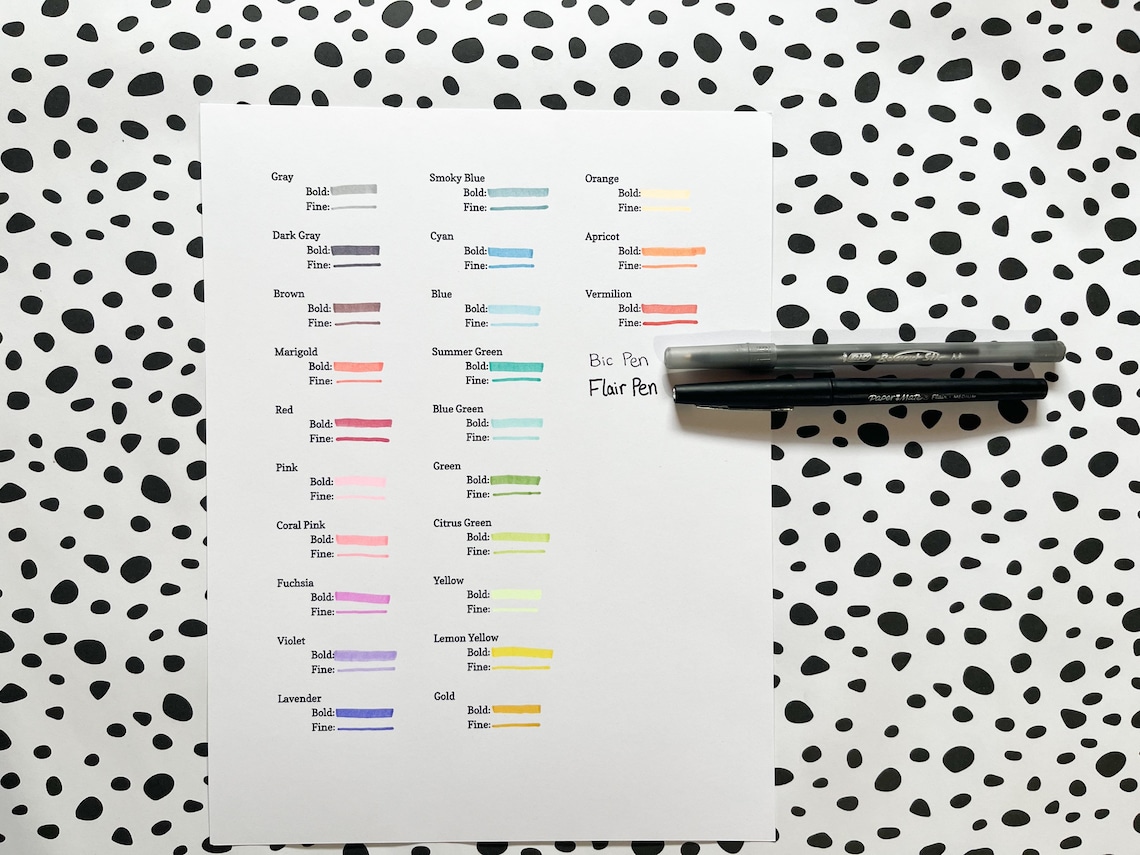 Gray
Bold:
Fine:
Dark Gray
Bold:
Fine:
Brown
Bold:
Fine:
Marigold
Bold:
Fine:
Red
Bold:
Fine:
Pink
Bold:
Fine:
Coral Pink
Bold:
Fine:
Fuchsia
Bold:
Fine:
Violet
Bold:
Fine:
Lavender
Bold:
Fine:
Smoky Blue
Bold:
Fine:
Cyan
Bold:
Fine:
Blue
Bold:
Fine:
Summer Green
Bold:
Fine:
Blue Green
Bold:
Fine:
Green
Bold:
Fine:
Citrus Green
Bold:
Fine:
Yellow
Bold:
Fine:
Lemon Yellow
Bold:
Fine:
Gold
Bold:
Fine:
Orange
Bold:
Fine:
Apricot
Bold:
Fine:
Vermilion
Bold:
Fine:
Bic Pen
Flair Pen
Paper Mate Flair MEDIUM